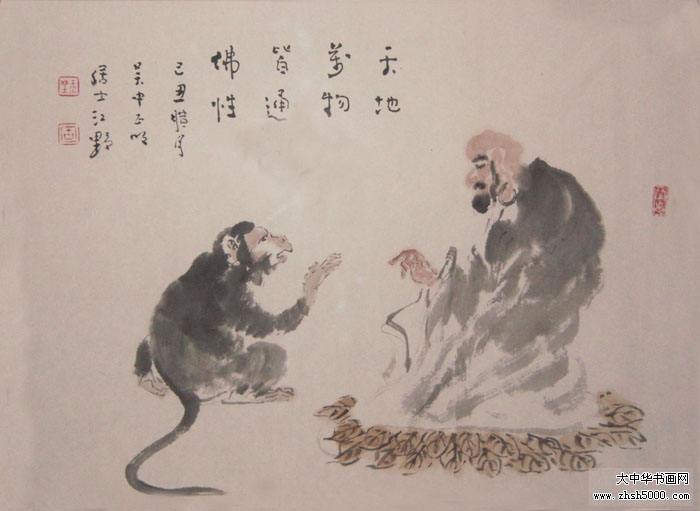 天地
萬物
皆通
佛性
己丑腊月
吴中
居士江野
大中华书画网
www.zhsh5000.com